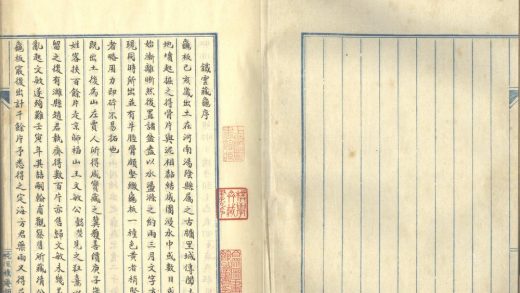 鐵雲藏龜序
龜板己亥歲出土在河南湯陰縣屬之古牖里城傳聞土
地墳起掘之得骨片與泥相黏結成團浸水中或數日或
始漸離晰然後置諸盆盎以水盪滌之約兩三月文字方
現同時所出並有牛脛骨頗堅緻龜板一種色黃者稍堅
者略用力即碎不易拓也
既出土後為山左賈人所得咸寶藏之冀獲善價庚子
姓客挾百餘片走京師福山王文敏公懿榮見之狂喜
留之後有濰縣趙君執齋得數百片亦售歸文敏未幾
亂起文敏遂殉難壬寅年其喆嗣翰甫觀察售所藏清公
龜板最後出計千餘片予悉得之定海方君藥雨又得